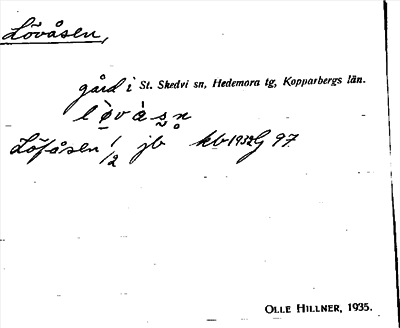 Lövåsen,
gård i St. Skedvi sn, Hedemora tg, Kopparbergs län.
lø̀vàsn̥
Löfåsen 1/2 jb kb 1932 G 97
OLLE HILLNER, 1935.